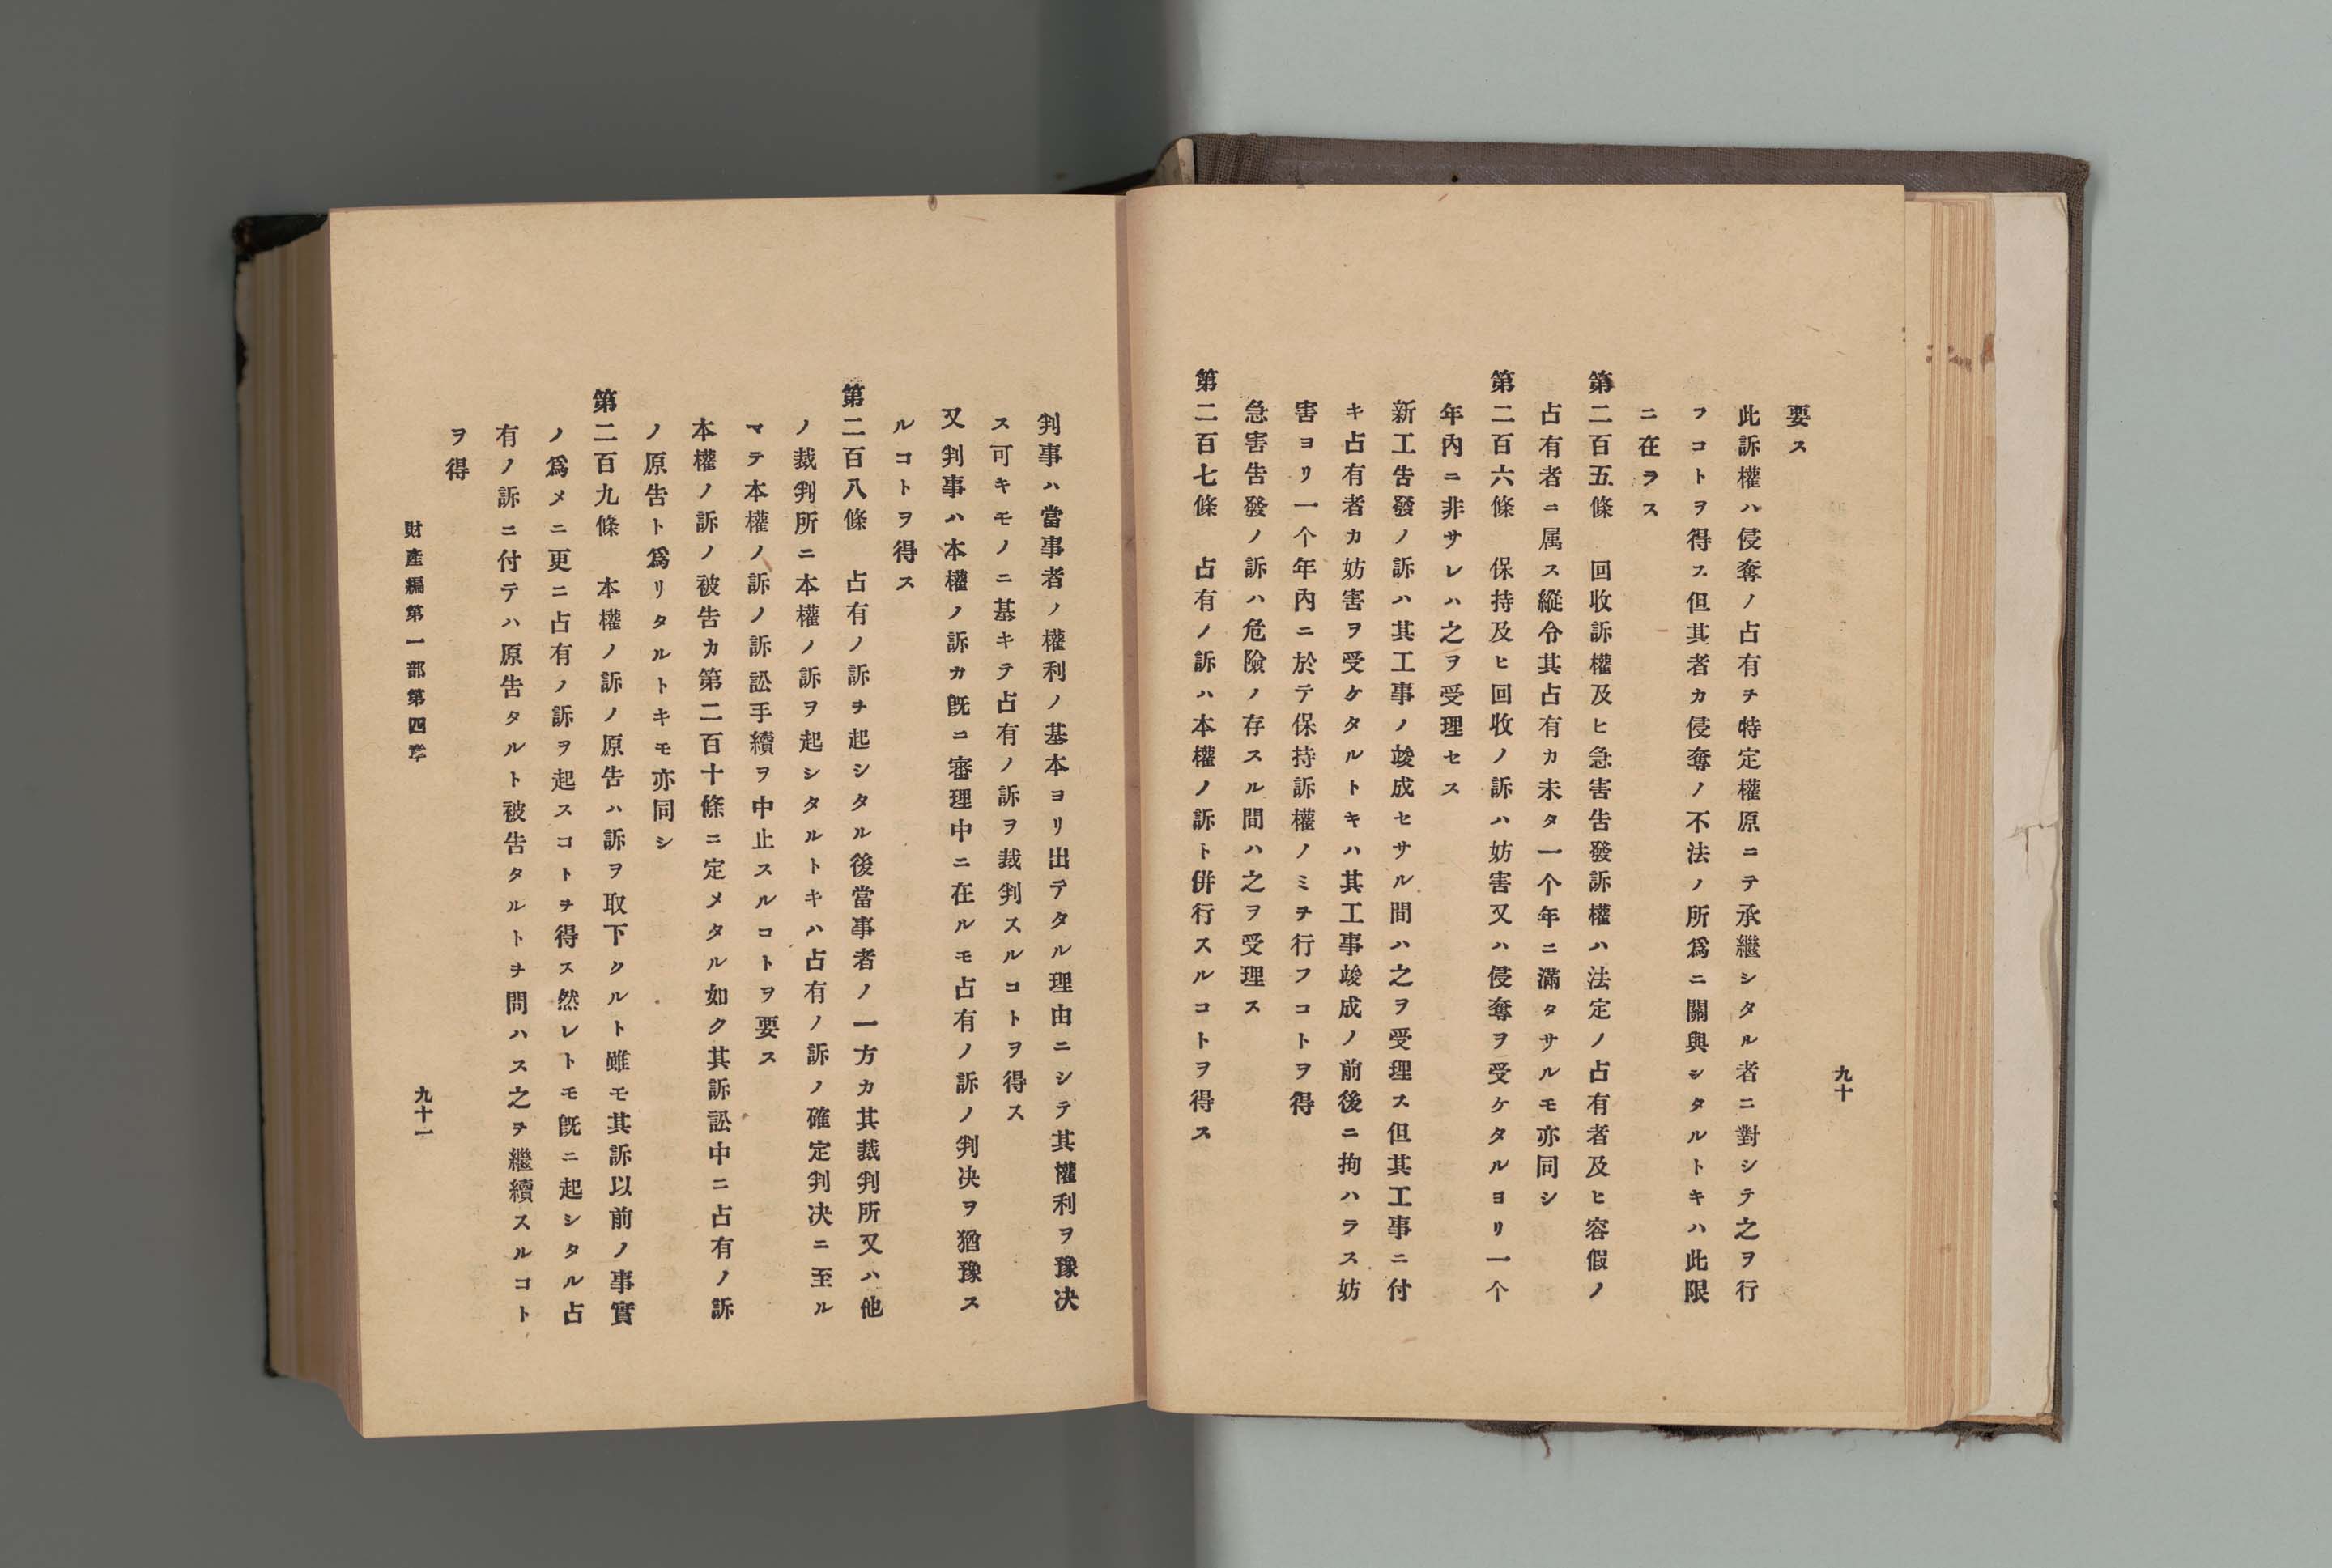 九十
要ス
此訴權ハ侵奪ノ占有ヲ特定權原ニテ承繼シタル者ニ對シテ之ヲ行
フコトヲ得ス但其者カ侵奪ノ不法ノ所爲ニ關與シタルトキハ此限
ニ在ラス
第二百五條　回收訴權及ヒ急害告發訴權ハ法定ノ占有者及ヒ容假ノ
占有者ニ属ス縱令其占有カ未タ一个年ニ滿タサルモ亦同シ
第二百六條　保持及ヒ回收ノ訴ハ妨害又ハ侵奪ヲ受ケタルヨリ一个
年內ニ非サレハ之ヲ受理セス
新工告發ノ訴ハ其工事ノ竣成セサル間ハ之ヲ受理ス但其工事ニ付
キ占有者カ妨害ヲ受ケタルトキハ其工事竣成ノ前後ニ拘ハラス妨
害ヨリ一个年內ニ於テ保持訴權ノミヲ行フコトヲ得
急害告發ノ訴ハ危險ノ存スル間ハ之ヲ受理ス
第二百七條　占有ノ訴ハ本權ノ訴ト併行スルコトヲ得ス
判事ハ當事者ノ權利ノ基本ヨリ出テタル理由ニシテ其權利ヲ豫决
ス可キモノニ基キテ占有ノ訴ヲ裁判スルコトヲ得ス
又判事ハ本權ノ訴カ旣ニ審理中ニ在ルモ占有ノ訴ノ判决ヲ猶豫ス
ルコトヲ得ス
第二百八條　占有ノ訴ヲ起シタル後當事者ノ一方カ其裁判所又ハ他
ノ裁判所ニ本權ノ訴ヲ起シタルトキハ占有ノ訴ノ確定判决ニ至ル
マテ本權ノ訴ノ訴訟手續ヲ中止スルコトヲ要ス
本權ノ訴ノ被告カ第二百十條ニ定メタル如ク其訴訟中ニ占有ノ訴
ノ原告ト爲リタルトキモ亦同シ
第二百九條　本權ノ訴ノ原告ハ訴ヲ取下クルト雖モ其訴以前ノ事實
ノ爲メニ更ニ占有ノ訴ヲ起スコトヲ得ス然レトモ旣ニ起シタル占
有ノ訴ニ付テハ原告タルト被告タルトヲ問ハス之ヲ繼續スルコト
ヲ得
財產編第一部第四章
九十一